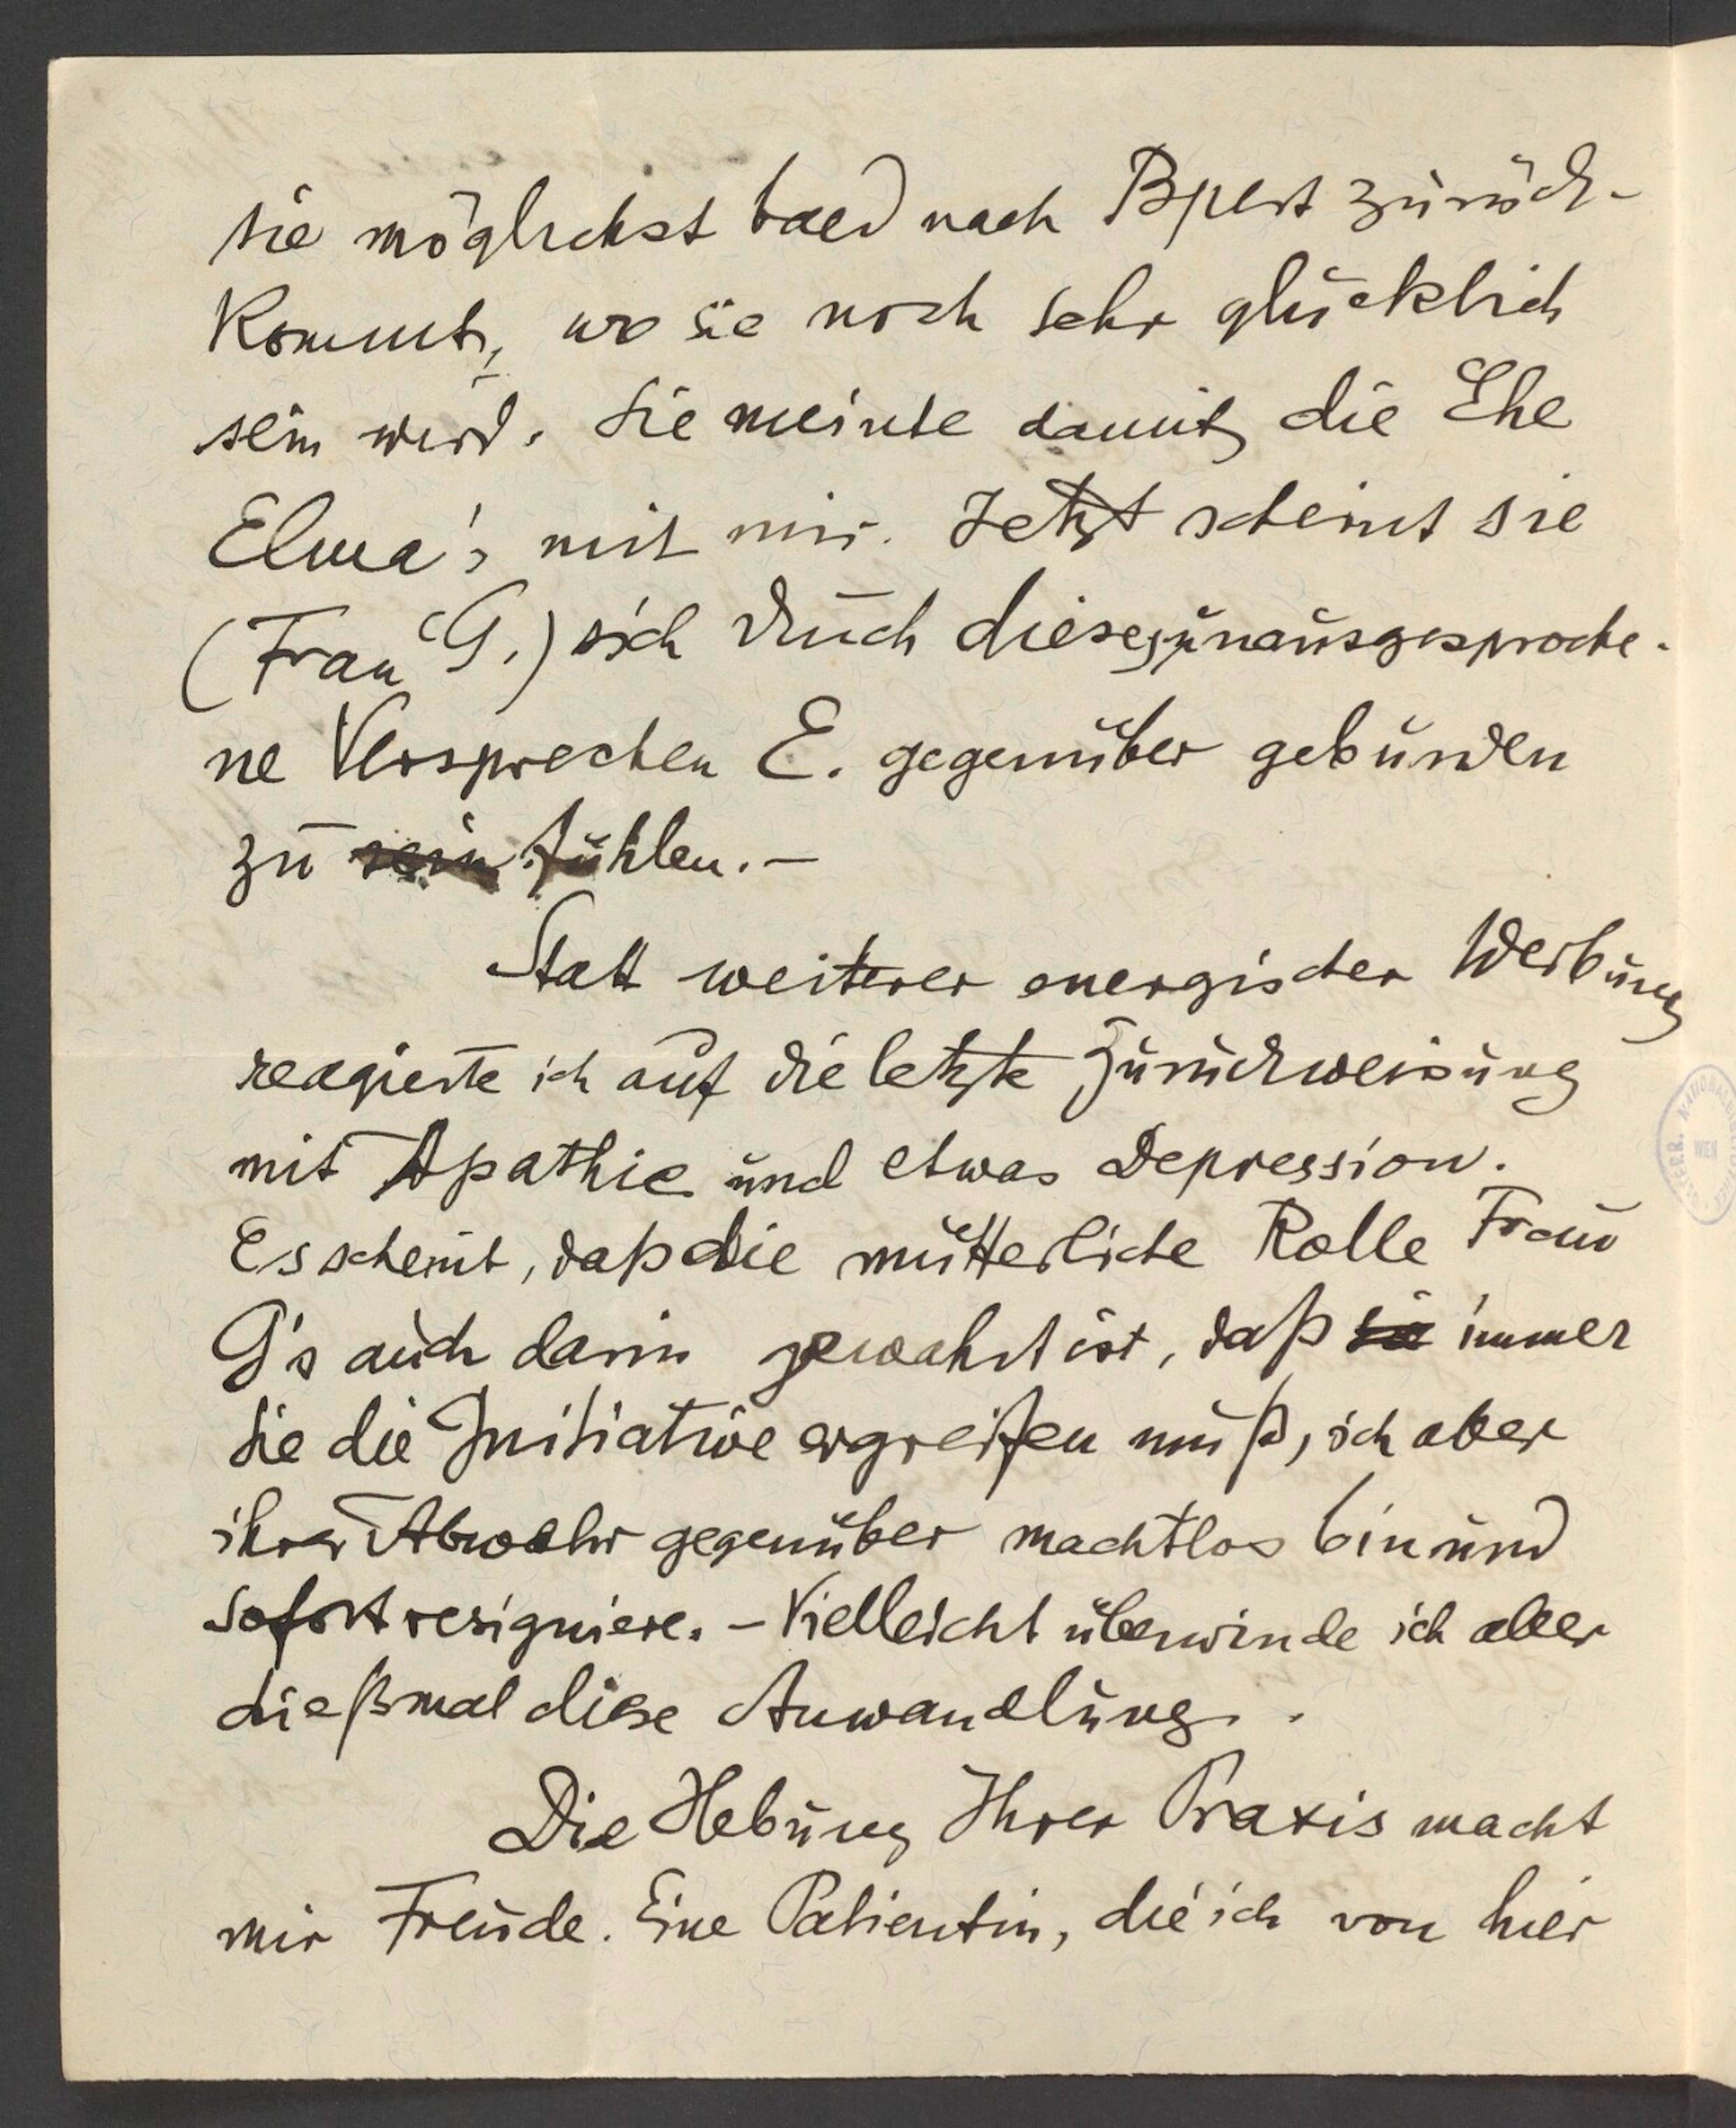 sie möglichst bald nach Bpest zurück-
kommt, wo sie noch sehr glücklich
sein wird. Sie meinte damit die Ehe
Elma's mit mir. Jetzt scheint sie
(Frau G.) sich durch dieses unausgesproche-
ne Versprechen E. gegenüber gebunden
zu sein fühlen. –
Statt weiterer energischer Werbung
reagierte ich auf die letzte Zurückweisung
mit Apathie und etwas Depression.
Es scheint, daß die mütterliche Rolle Frau
G's auch darin gewahrt ist, daß sie immer
sie die Initiative ergreifen muß, ich aber
ihrer Abwehr gegenüber machtlos bin und
sofort resigniere. – Vielleicht überwinde ich aber
dießmal diese Anwandlung.
Die Hebung Ihrer Praxis macht
mir Freude. Eine Patientin, die ich von hier
WIEN